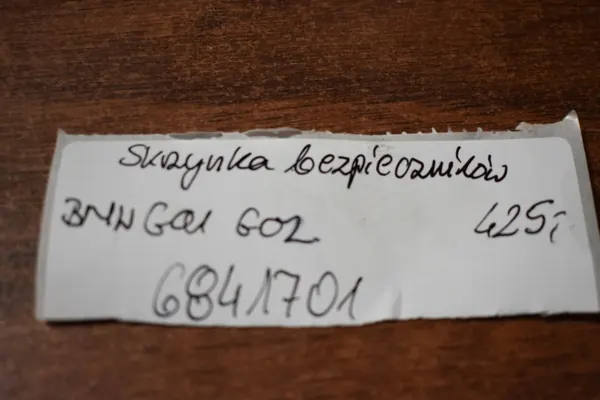 Skrzynka bezpieczników
BMW G01 G02 425,-
6841701